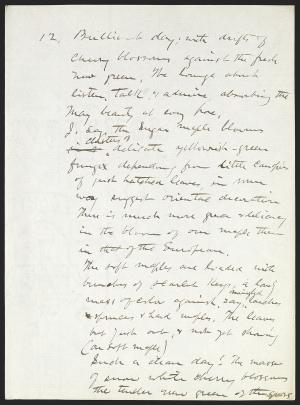 12. Brilliant day; with drifts of
cherry blossoms against the fresh
new green. We lounge about
listen, talk & admire absorbing the
May beauty at every pore.
J. say, the sugar maple blooms
clusters of
delicate yellowish-green
fringe depending from little canopies
of just hatched leaves, in some
way suggest oriental decoration
There is much more grace & delicacy
in the bloom of our maple than
in that of the European.
The soft maples are loaded with
bunches of scarlet keys, a lovely
mass of color against, say, larches
mingled
spruces & hard maples. The leaves
but just out, & make yet showing
(on soft maple)
Such a clear day! The masses
of snow white cherry blossoms
the tender new green of the grass